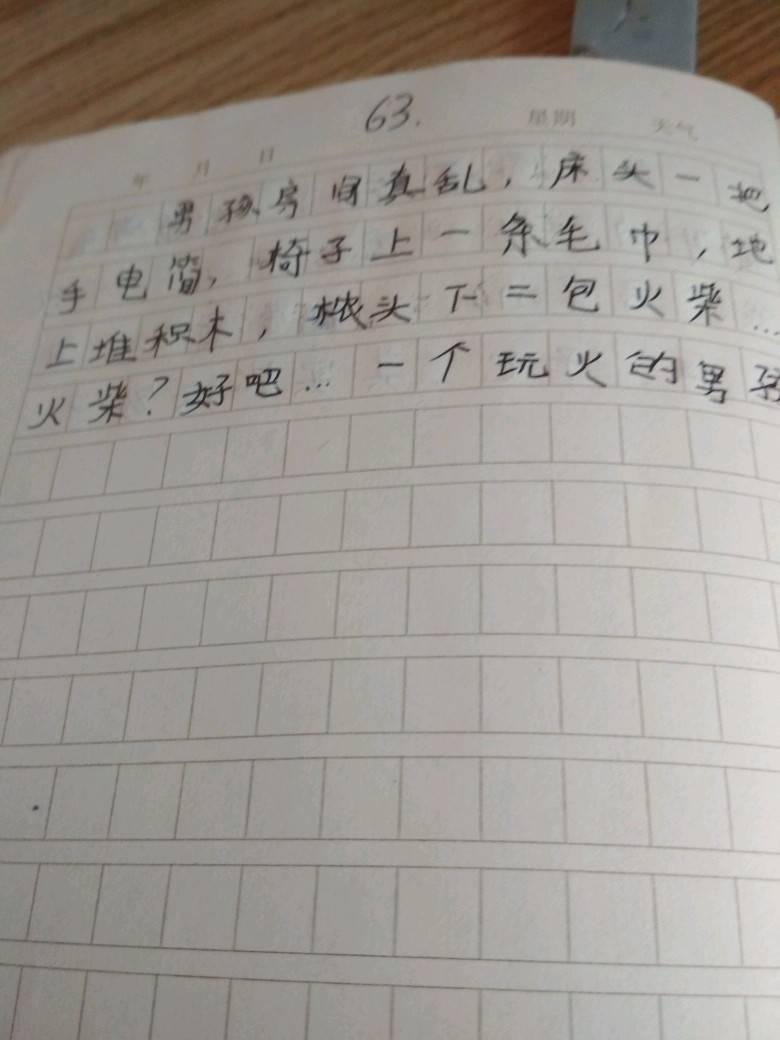 63.
年 月 日 星期 天气
男孩房间真乱，床头一地
手电筒，椅子上一条毛巾，地
上堆积木，枕头下二包火柴…
火柴？好吧…一个玩火的男孩